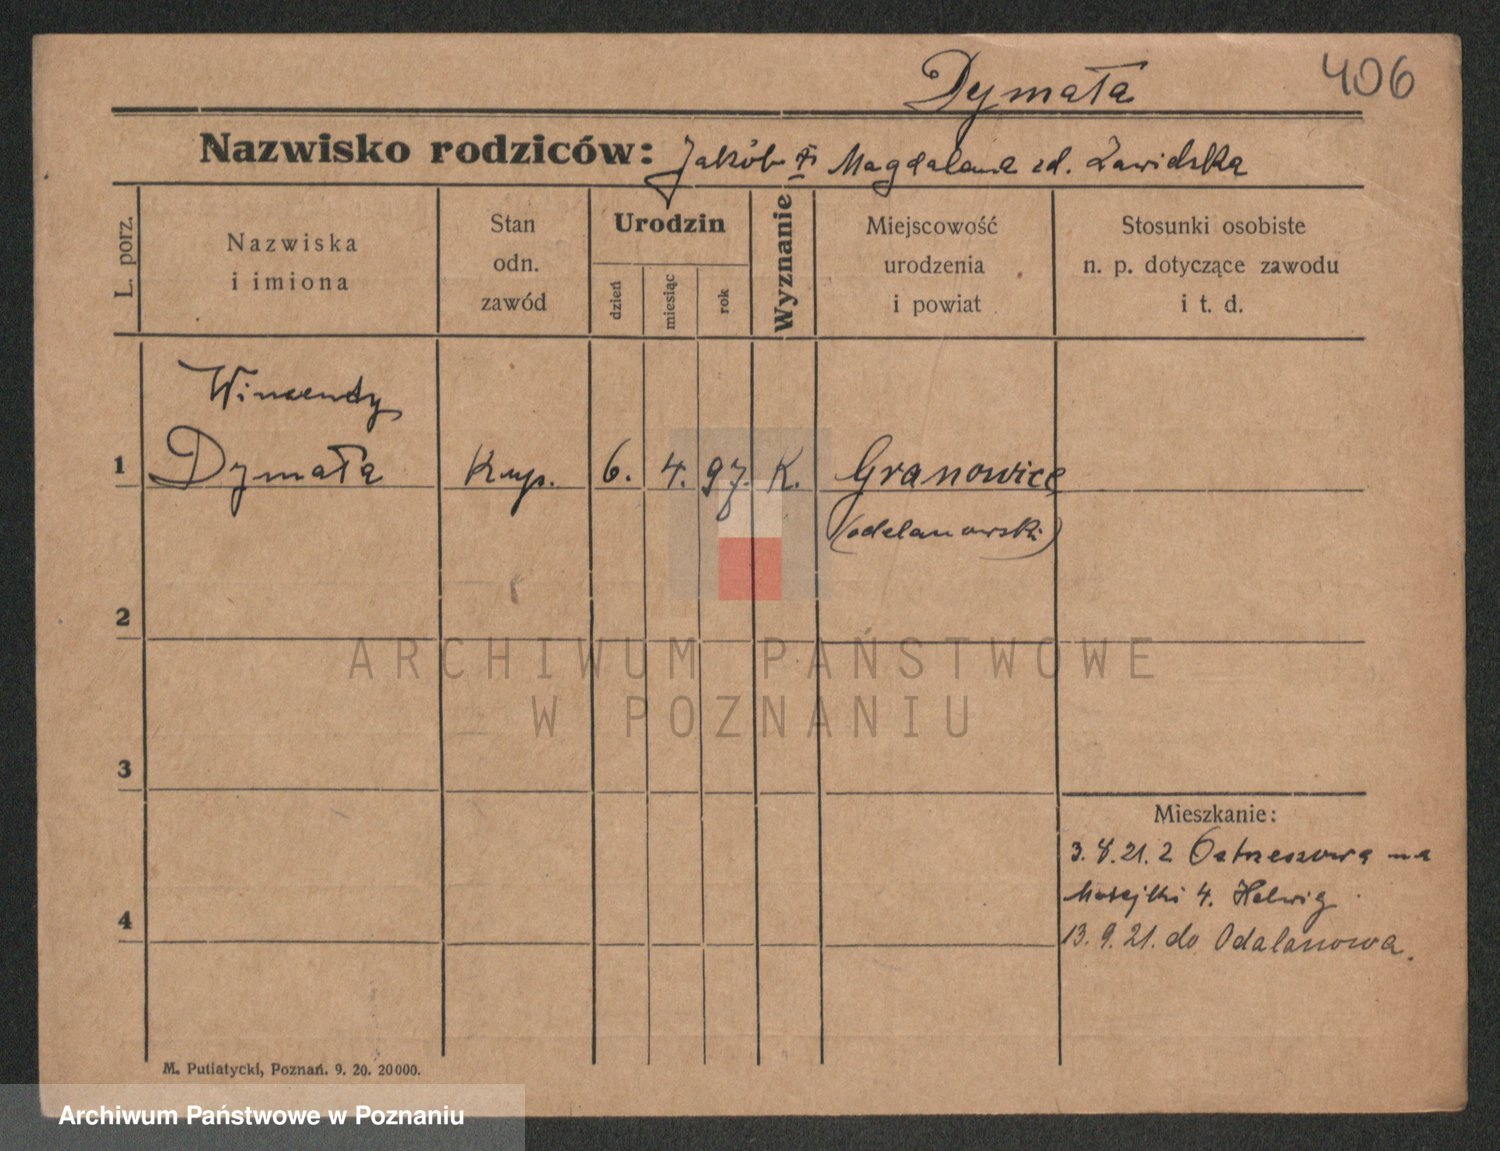 Dymała
406
Nazwisko rodziców: Jakób i Magdalena zd. Zawidzka
L. porz.
Nazwiska
i imiona
Stan
odn.
zawód
Urodzin
dzień
miesiąc
rok
Wyznanie
Miejscowość
urodzenia
i powiat
Stosunki osobiste
n. p. dotyczące zawodu
i t. d.
Wincenty
1 Dymała Kup. 6. 4. 97. K. Granowice
(odolanowski)
2
3
Mieszkanie:
3. 8. 21. z Ostrzeszowa na
4. Helwig
4
13. 9. 21. do Odolanowa.
M. Putiatycki, Poznań. 9. 20. 20000.
ARCHIWUM PAŃSTWOWE
W POZNANIU
Archiwum Państwowe w Poznaniu